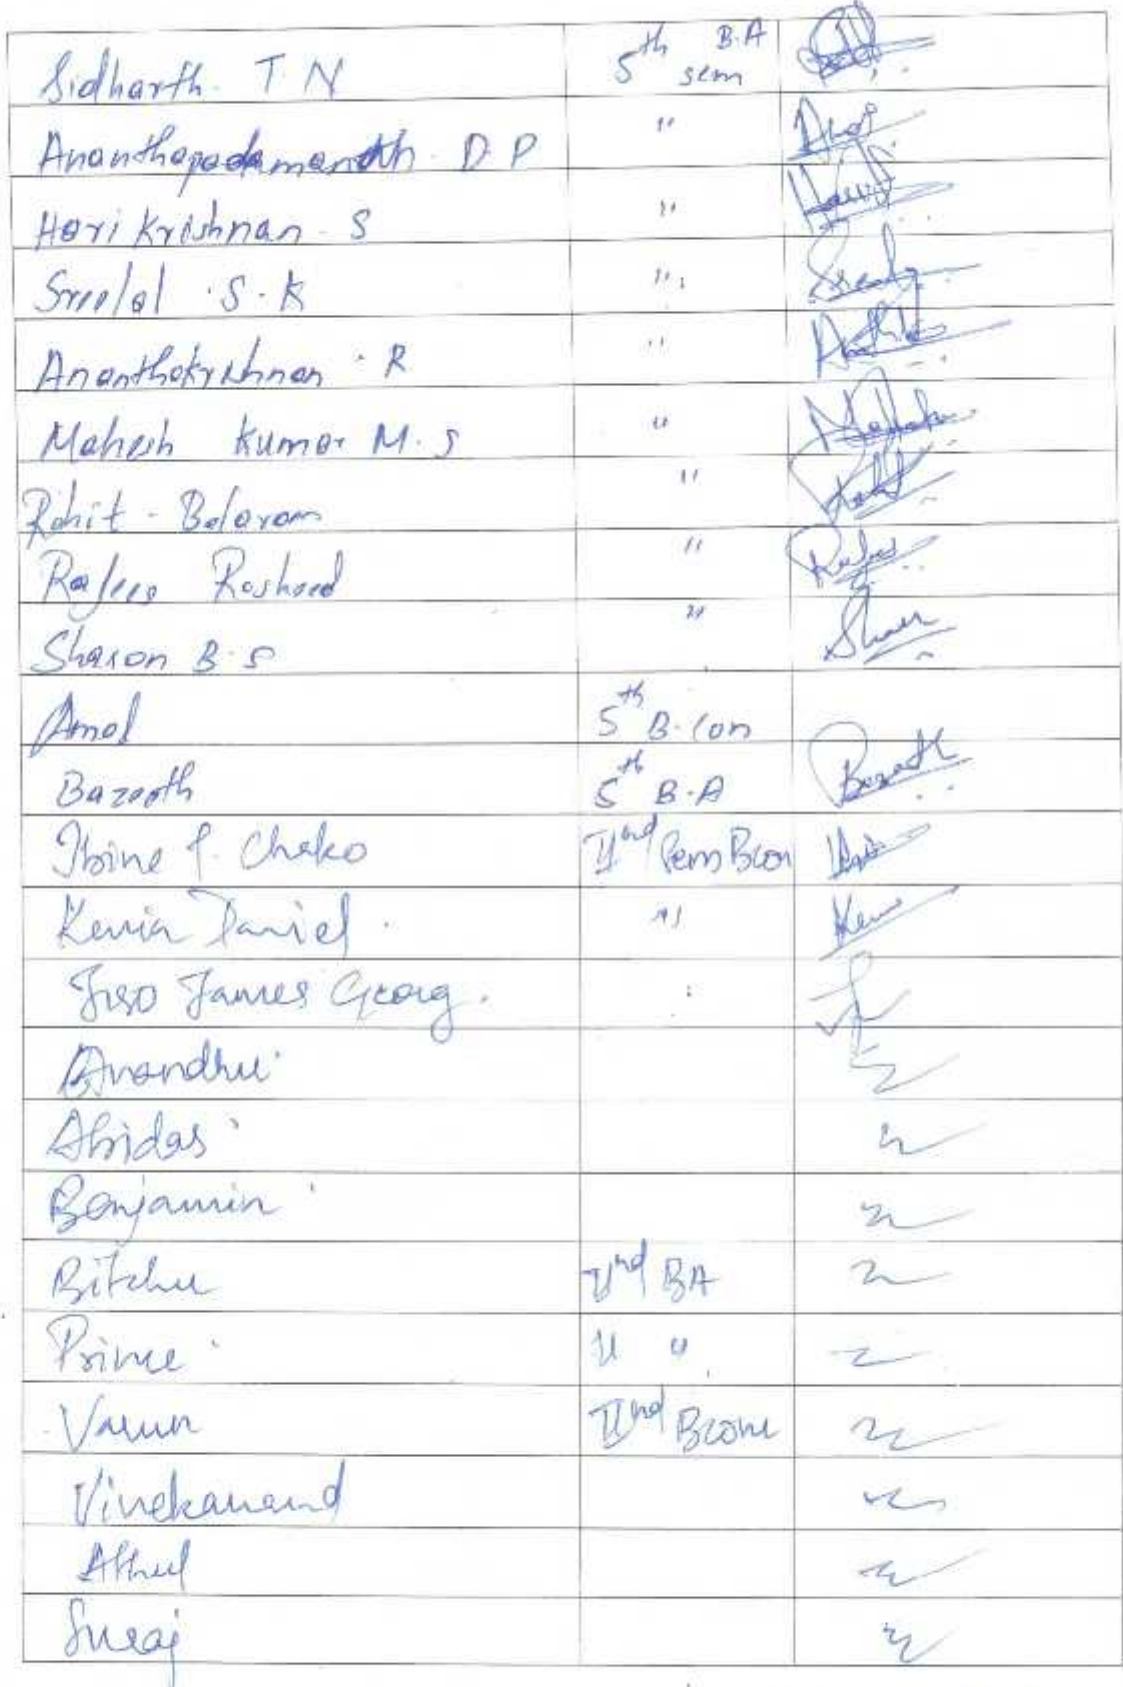 Sidharth. T. N 5th B.A sem
Ananthapadamanath. D P "
Hari Krishnan. S "
Sreelal . S. K "
Ananthakrishnan . R "
Mahesh Kumar M. S "
Rohit - Balaram "
Rafees Rasheed "
Sharon B. S "
Amal 5th B.Com
Bazeeth 5th B.A Bazeeth
Ibine P. Chako IInd Sem Bcom
Kevin Daniel . "
James Georg.
Anandhu
Abidas
Benjamin
Bitchu IInd BA
Prince " "
Varun IInd Bcom
Vivekanand
Athul
Suraj